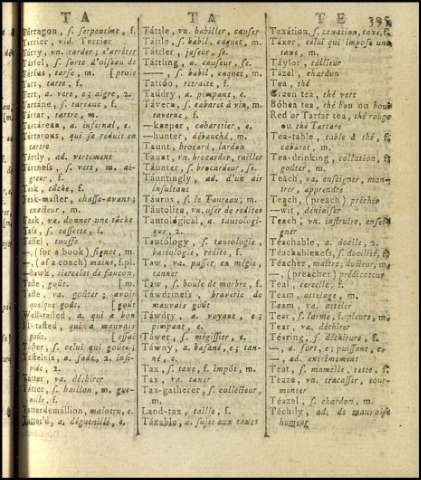 TA
TA
TE
395
Tarragon, s. serpentine, f.
Tarrier, vid. Terrier
Tarry, vn. tarder; s'arrêter
Tarse, tarse, m.
Tart, tarte, f.
Tart, a. verte, e; aigre, 2.
Tartane, s. tartane, f.
Tartar, tartre, m.
Tartarean, a. infernal, e.
Tartarous, qui se réduit en
tartre
Tartly, ad. vertement
Tartness, s. vert, m. ai-
greur, f.
Task, tâche, f.
Task-master, chasse-avant;
exacteur, m.
Task, va. donner une tâche
Tassel, touffe
—, (for a book) signet, m.
—, (of a coach) main, f.
—hawk, tiercelet de faucon,
Taste, goût, [m.
Taste, va. goûter; avoir
quelque goût; [goût
Well-tasted, qui a bon
Ill-tasted, qui a mauvais
goût,
Taster, s. celui qui goûte;
Tasteless, a. fade, 2. insi-
pide, 2.
Tatter, va. déchirer
Tatter, s. haillon, m. gue-
nille, f.
Tatterdemallion, malotru, e.
Tattered, a. déguenillé, e.
Tattle, vn. babiller, causer
Tattle, s. babil, caquet, m.
Tattler, jaseur, se.
Tattling, a. causeur, se.
——, s. babil, caquet, m.
Tattoo, retraite, f.
Taudry, a. pimpant, e.
Tavern, s. cabaret à vin, m.
taverne, f.
—keeper, cabaretier, e.
—hunter, débauché, m.
Taunt, brocard, lardon
Taunt, vn. brocarder, railler
Taunter, s. brocardeur, se.
Tauntingly, ad. d'un air
insultant
Taurus, s. le Taureau; m.
Tautolize, vn. user de redites
Tautological, a. tautologi-
que, 2.
Tautology, s. tautologie,
battologie, redite, f.
Taw, va. passer en mégie,
tanner
Taw, s. boule de marbre, f.
Tawdriness, s. braverie de
mauvais goût
Tawdry, a. voyant, e;
pimpant, e.
Tawer, s. mégissier, e.
Tawny, a. basané, e; tan-
né, e.
Tax, s. taxe, f. impôt, m.
Tax, va. taxer
Tax-gatherer, s. collecteur,
m.
Land-tax, taille, f.
Taxable, a. sujet aux taxes
Taxation, s. taxation, taxe, f.
Taxer, celui qui impose une
taxe, m.
Taylor, tailleur
Tazel, chardon
Tea, thé
Green tea, thé vert
Bohea tea, thé bou ou bout
Red or Tartar tea, thé rouge
ou thé Tartare
Tea-table, table à thé, f.
cabaret, m.
Tea-drinking, collation, f.
goûter, m.
Teach, va. enseigner, mon-
trer, apprendre
Teach, (preach) prêcher
—wit, déniaiser
Teach, vn. instruire, ensei-
gner
Teachable, a. docile, 2.
Teachableness, s. docilité, f.
Teacher, maître; docteur, m.
—, (preacher) prédicateur
Teal, cercelle, f.
Team, attelage, m.
Team, va. atteler
Tear, s. larme, f. pleurs, m.
Tear, va. déchirer
Tearing, s. déchirure, f.
—, a. fort, e; puissant, e.
—, ad. extrêmement
Teat, s. mamelle, tette, f.
Teaze, va. tracasser, tour-
menter
Teazel, s. chardon, m.
Techily, ad. de mauvaise
humeur